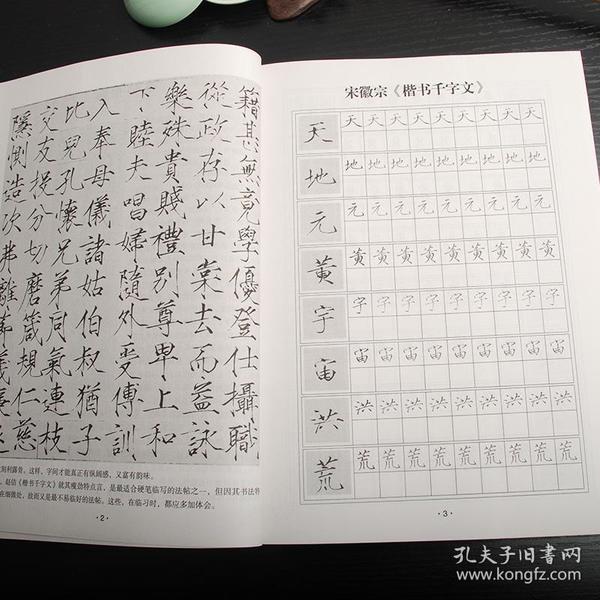 籍甚無竟學優登仕攝職
從政存以甘棠去而益詠
樂殊貴賤禮別尊卑上和
下睦夫唱婦隨外受傅訓
入奉母儀諸姑伯叔猶子
比兒孔懷兄弟同氣連枝
交友投分切磨箴規仁慈
隱惻造次弗離節義廉退
利露骨，这样，字间才能真正有纵阔感、又富有韵味。
，赵佶《楷书千字文》就其瘦劲特点言，是最适合硬笔临写的法帖之一，但因其书法特
在细微处，故而又是最不易临好的法帖。这些，在临习时，都应多加体会。
·2·
宋徽宗《楷书千字文》
天 天 天 天 天 天 天 天 天
地 地 地 地 地 地 地 地 地
元 元 元 元 元 元 元 元 元
黄 黄 黄 黄 黄 黄 黄 黄 黄
宇 宇 宇 宇 宇 宇 宇 宇 宇
宙 宙 宙 宙 宙 宙 宙 宙 宙
洪 洪 洪 洪 洪 洪 洪 洪 洪
荒 荒 荒 荒 荒 荒 荒 荒 荒
·3·
孔夫子旧书网
www.kongfz.com